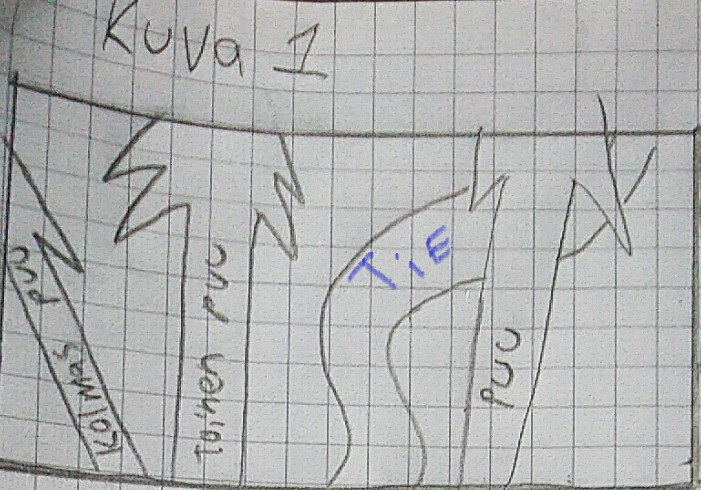 Kuva 1
KOlMAS puu
TOinen puu
TiE
puu